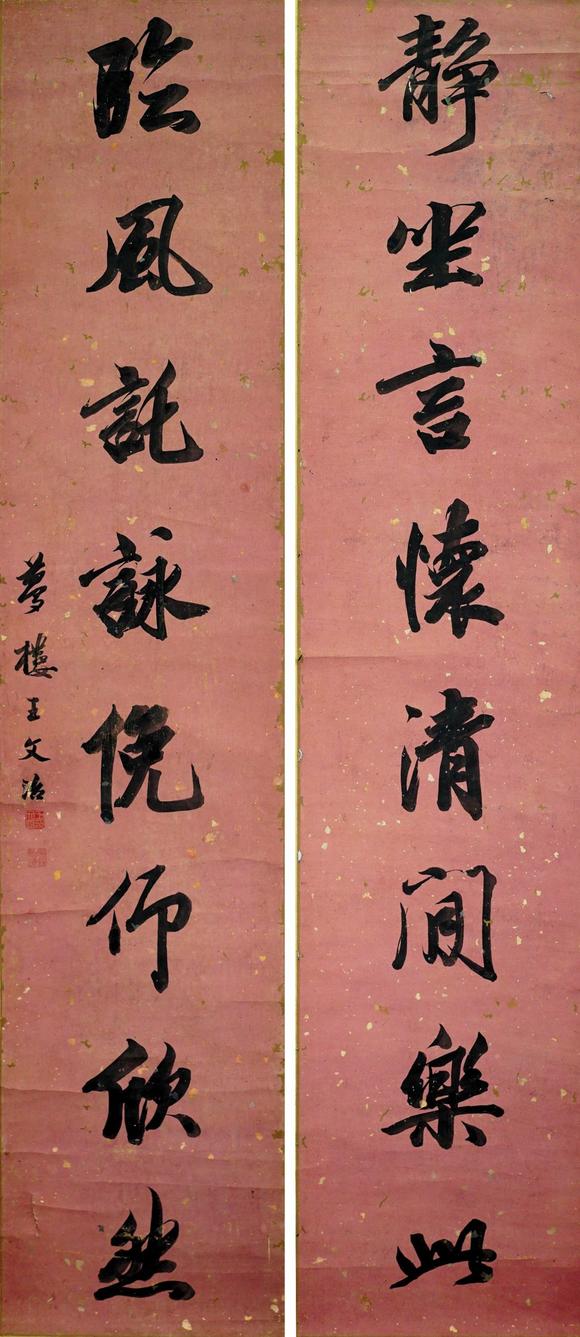 靜坐言懷清閒樂此
臨風託詠俛仰欣然
夢樓王文治